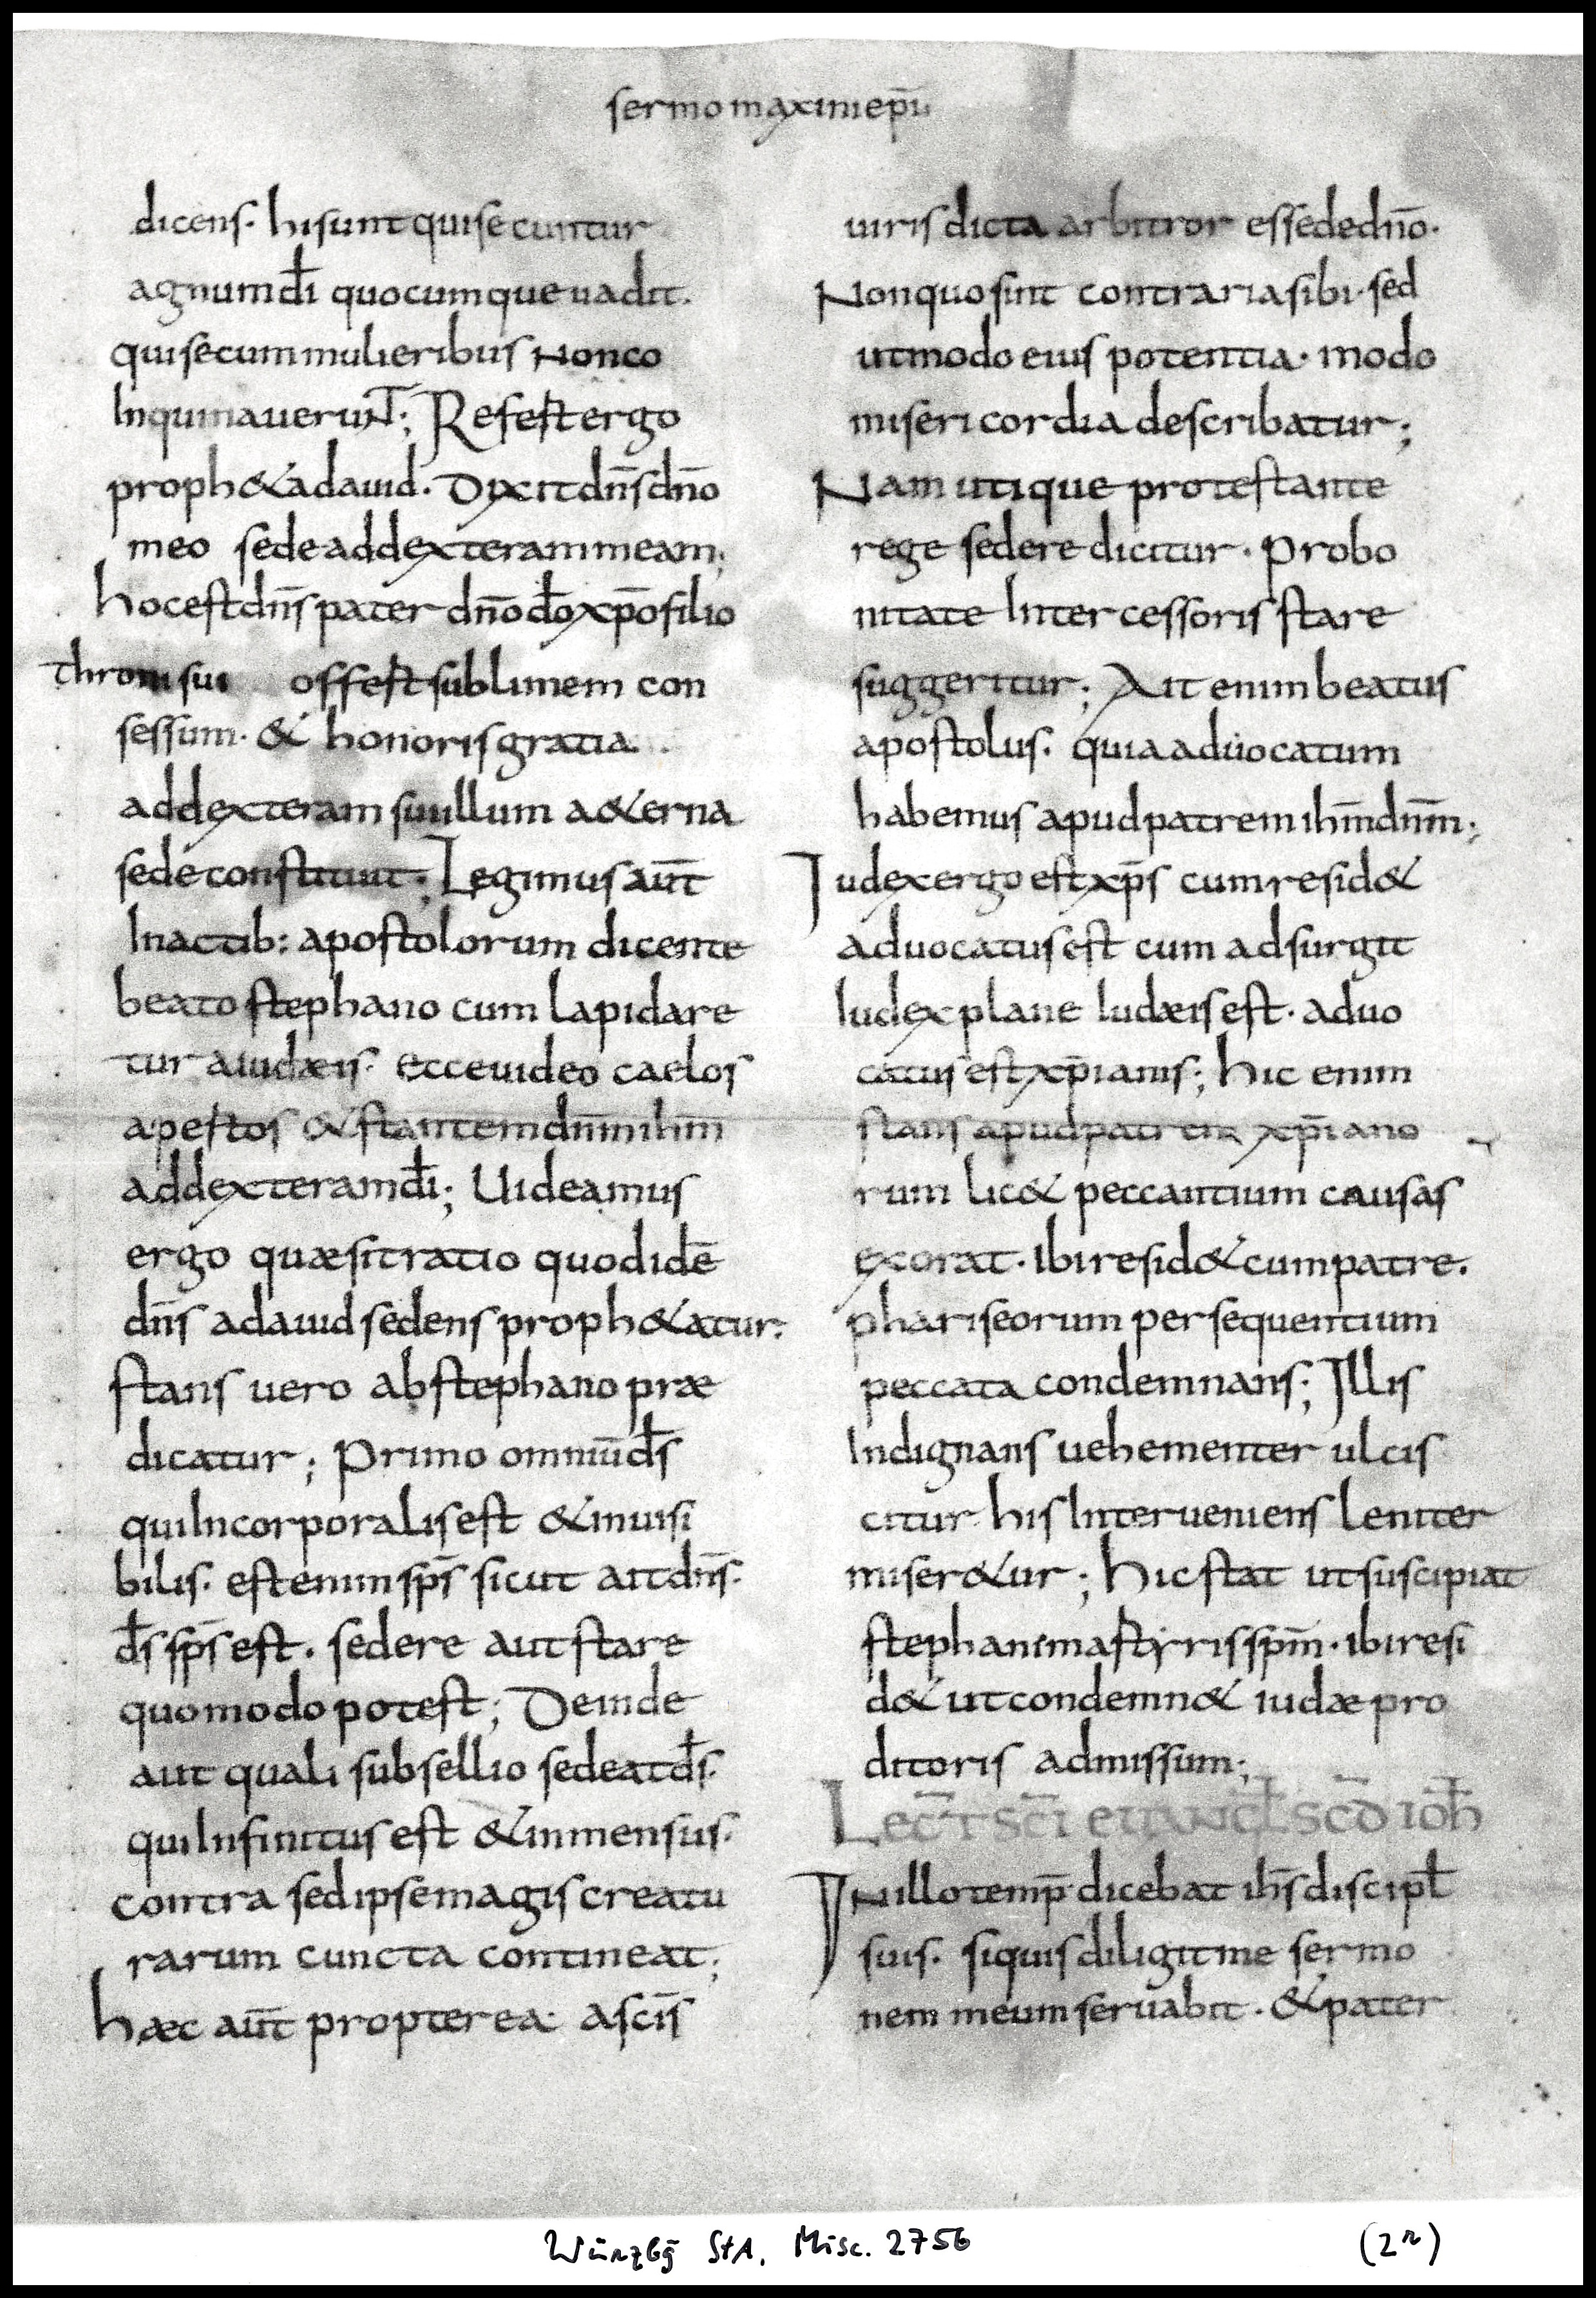 sermo maximi ep̄i
dicens· hi sunt qui secuntur
agnum dī quocumque uadit·
qui se cum mulieribus non co
Inquinauerunt; Refert ergo
proph&a dauid· Dixit dn̄s dn̄o
meo sede ad dexteram meam;
hoc est dn̄s pater dn̄o do̅ xp̄o filio
throni sui offert sublimem con
sessum· & honoris gratia
ad dexteram su illum a&erna
sede constituit; Legimus aūt
In actib: apostolorum dicente
beato stephano cum lapidare
tur a iudæis· ecce uideo caelos
apertos & stantem dn̄m ihm̄
ad dexteram dī; Uideamus
ergo quæ sit ratio quod idē
dn̄s a dauid sedens proph&atur·
stans uero ab stephano præ
dicatur; Primo omniū ds̄
qui Incorporalis est & inuisi
bilis· est enim sps̄ sicut ait dn̄s·
ds̄ sps̄ est· sedere aut stare
quomodo potest; Deinde
aut quali subsellio sedeat ds̄·
qui Infinitus est & inmensus·
contra sed ipse magis creatu
rarum cuncta contineat;
hæc aūt propterea a sc̄is
uiris dicta arbitror esse de dn̄o·
Non quo sint contraria sibi· sed
ut modo eius potentia· modo
misericordia describatur;
Nam utique protestante
rege sedere dicitur· pro bo
nitate Intercessoris stare
suggeritur; Ait enim beatus
apostolus· quia aduocatum
habemus apud patrem ihm̄ dnm̄;
Iudex ergo est xp̄s cum resid&
aduocatus est cum adsurgit
Iudex plane Iudæis est· aduo
catus est xp̄ianis; hic enim
stans apud patrem xp̄iano
rum lic& peccantium causas
exorat· Ibi resid& cum patre·
phariseorum persequentium
peccata condemnans; Illis
Indignans uehementer ulcis
citur his Interueniens leniter
miser&ur; hic stat ut suscipiat
stephani martyris spm̄· ibi resi
d& ut condemn& iudæ pro
ditoris admissum;
Lec̄t sc̄i euangl̄ sc̄d ioh̄
IN illo temp̄ dicebat ihs̄ discipl̄
suis· si quis diligit me sermo
nem meum seruabit· & pater
Würzbg StA, Misc. 2756
(2r)